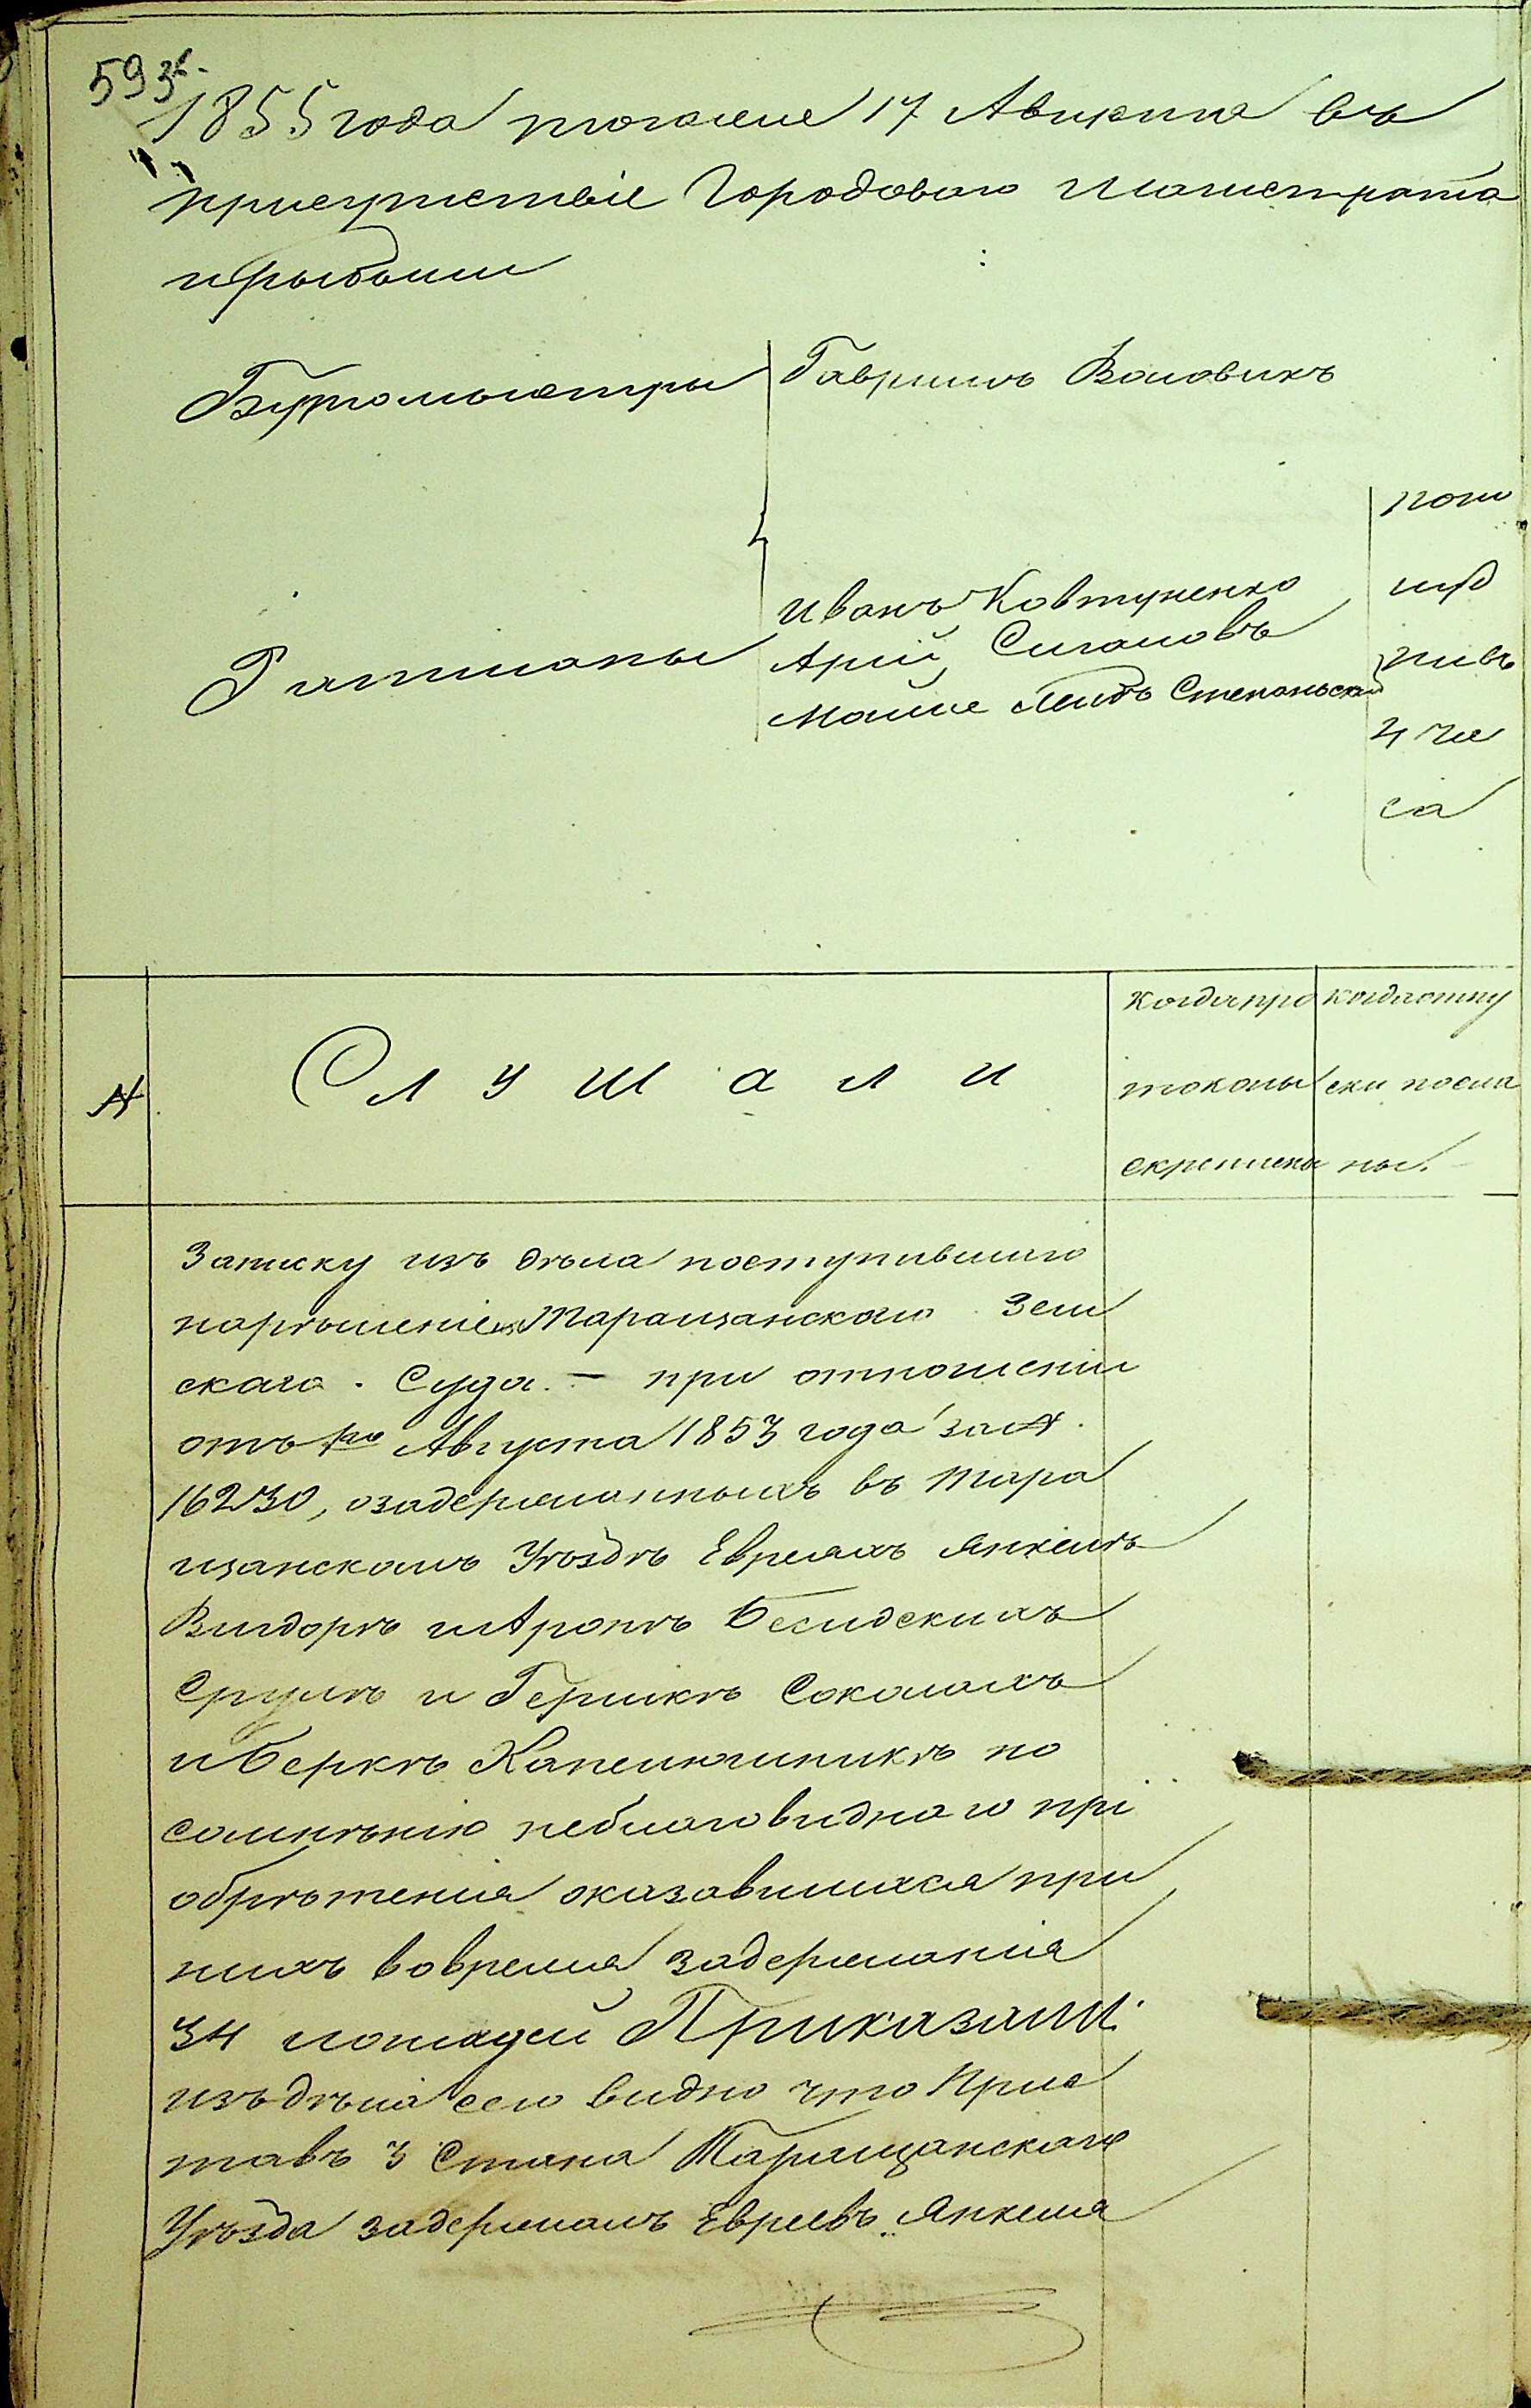 593
1855 года тогоже 17 Августа въ
присутствіе Городоваго Магистрата
прыбыли
Бургомыстры Гаврыилъ Воловикъ
Ратманы
Иванъ Ковтуненко
Арій Сигаловъ
Мошке Лейбъ Степаньскій
по
пив
ъ
4 ча
са
№
Слушали
когда про
токолы
скреплены
когда отпу
ски посла
ны.
Записку изъ дѣла поступившаго
нарѣшеніе Таращанскаго Зем
скаго Суда. – при отношеніи
отъ Августа 1853 года за №.
16230, озадержанныхъ въ Тара
щанскомъ Уѣздѣ Евреяхъ Янкелѣ
Вигдорѣ и Аронѣ Бесидскихъ
Срулѣ и Гершкѣ Соколахъ
и Беркѣ Капелюшникѣ по
сомнѣнію неблаговиднаго прі
обрѣтенія оказавшихся при
нихъ вовремя задержанія
34 лошадей Приказали:
изъ дѣла сего видно что Прис
тавъ 3 Стана Таращанскаго
Уѣзда задержалъ Евреевъ Янкеля